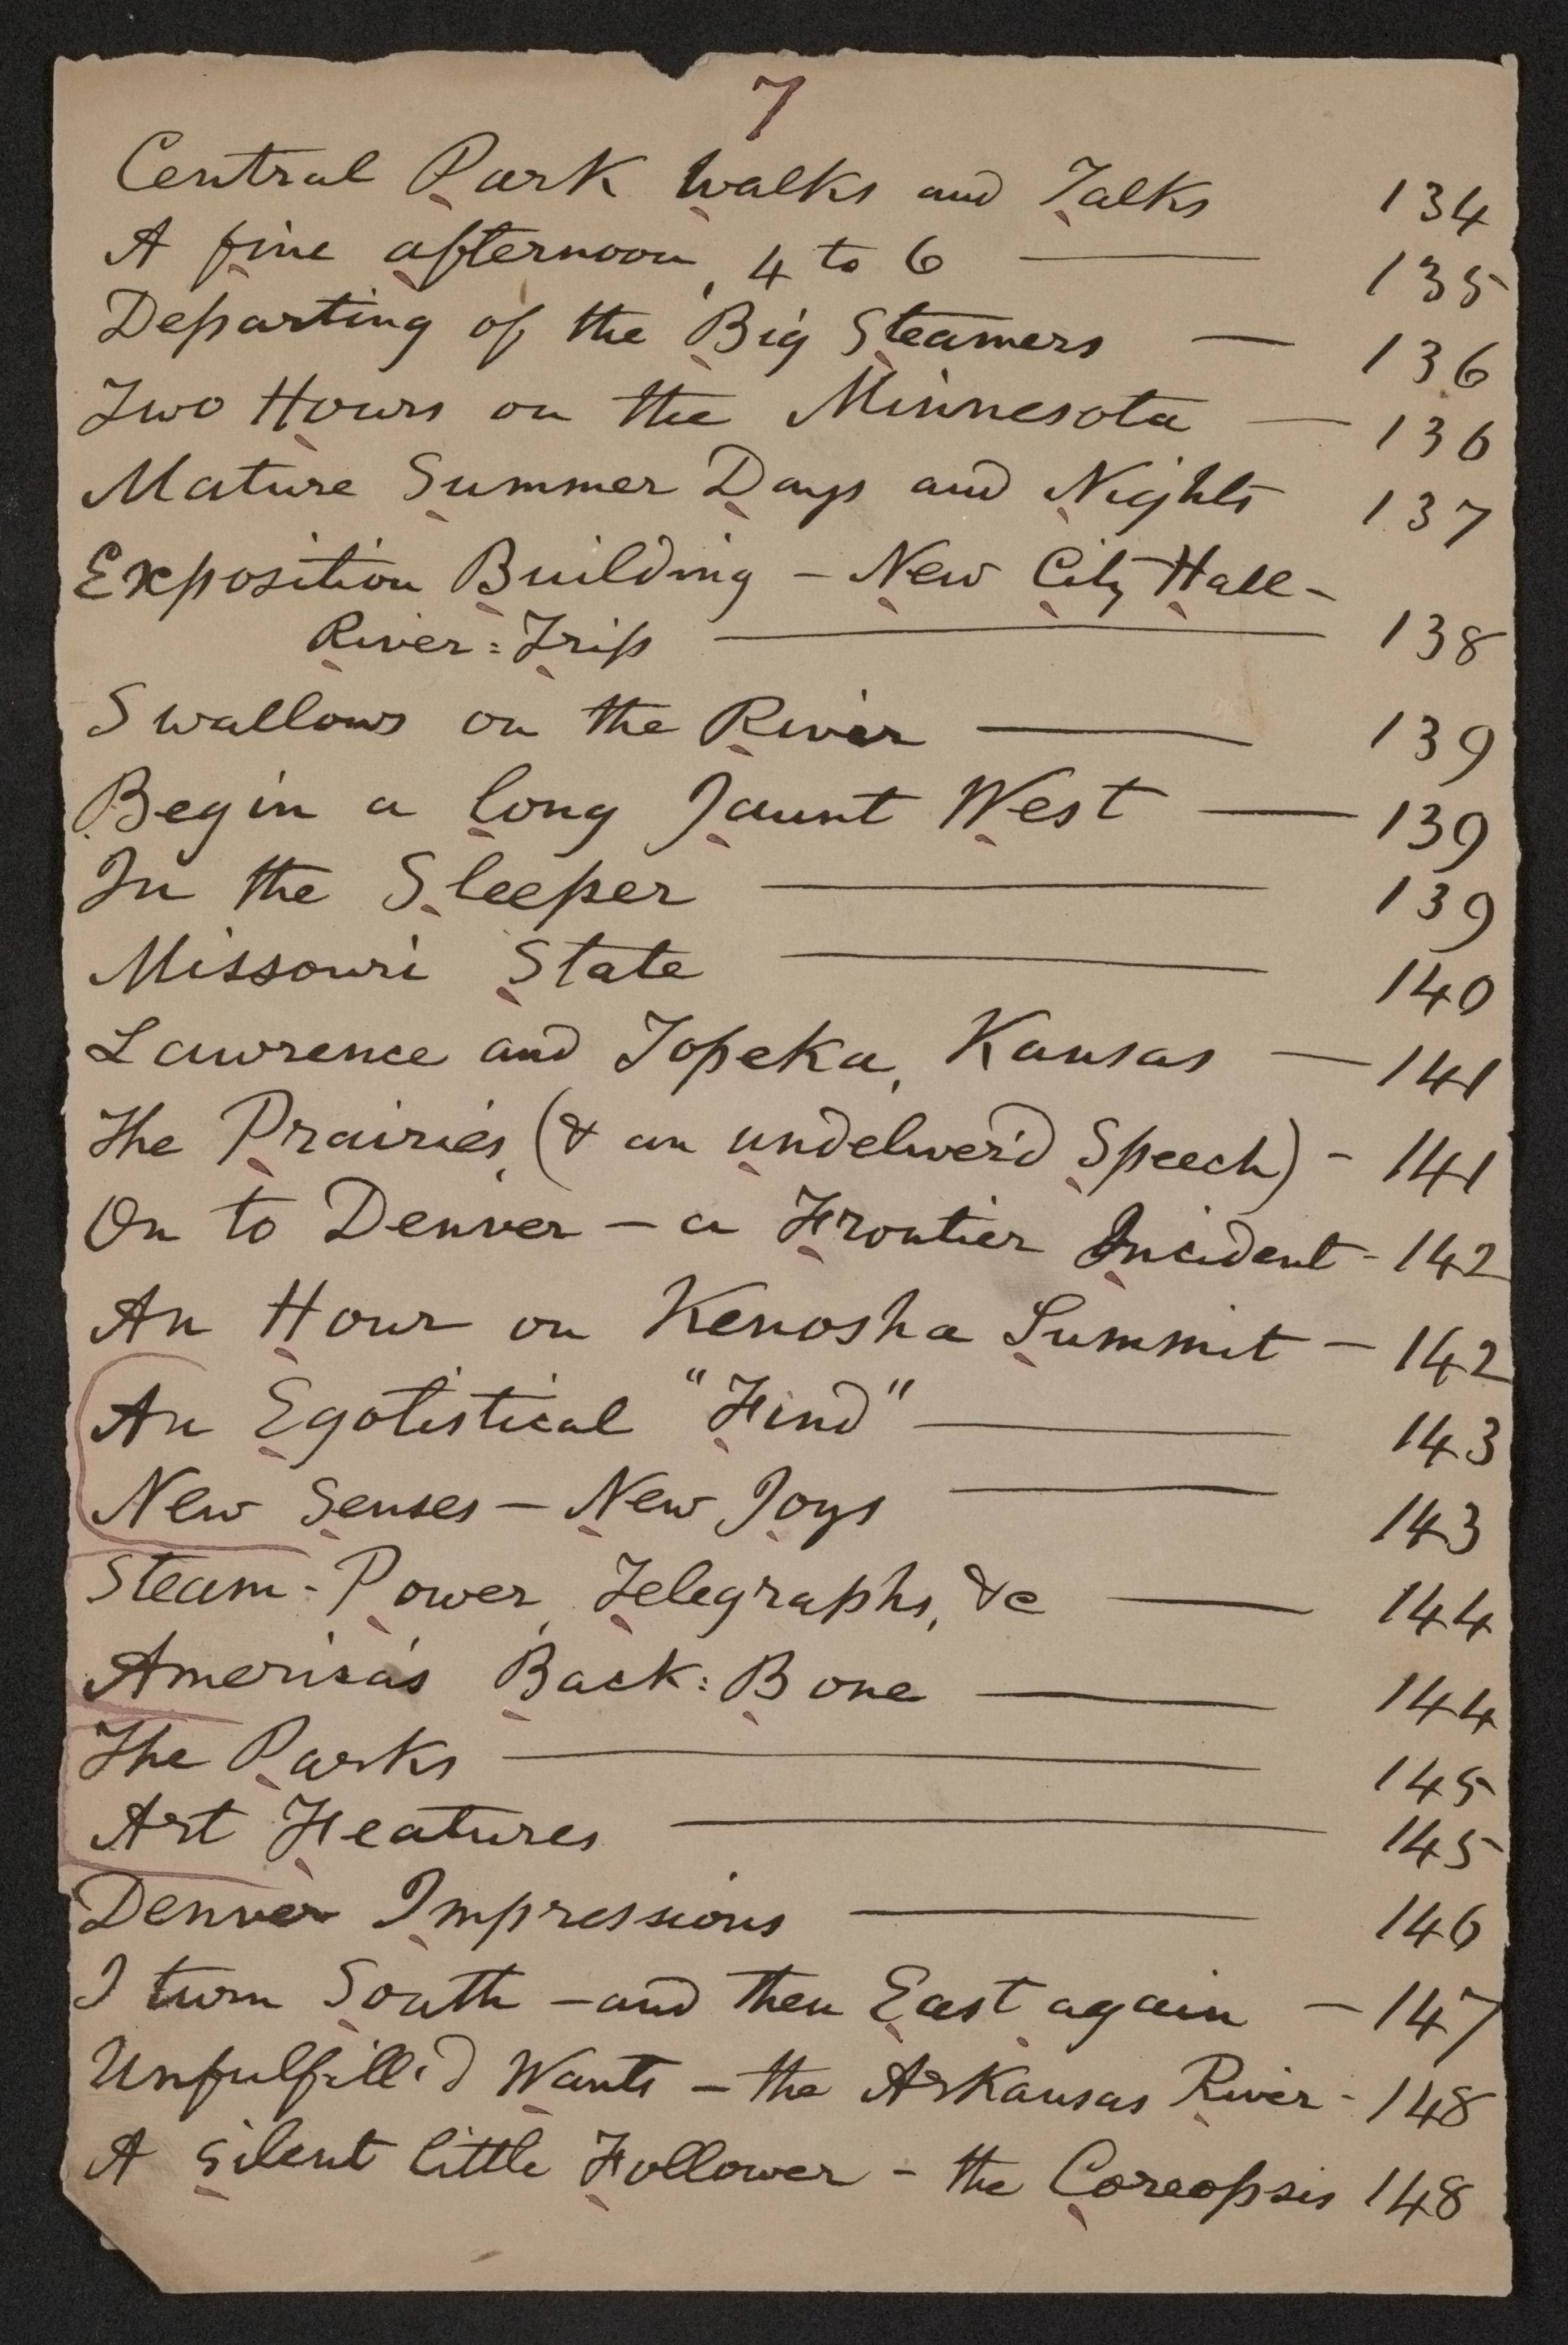 7
Central Park Walks and Talks 134
A fine afternoon, 4 to 6 — 135
Departing of the Big Steamers — 136
Two Hours on the Minnesota — 136
Mature Summer Days and Nights 137
Exposition Building – New City Hall –
River=Trip — 138
Swallows on the River — 139
Begin a long Jaunt West — 139
In the Sleeper — 139
Missouri State — 140
Lawrence and Topeka, Kansas — 141
The Prairies, (& an undeliver'd Speech) – 141
On to Denver – a Frontier Incident – 142
An Hour on Kenosha Summit – 142
An Egotistical "Find" — 143
New Senses – New Joys — 143
Steam-Power, Telegraphs, &c — 144
America's Back=Bone — 144
The Parks — 145
Art Features — 145
Denver Impressions — 146
I turn South – and then East again – 147
Unfulfill'd Wants – the Arkansas River - 148
A silent little Follower – the Coreopsis 148